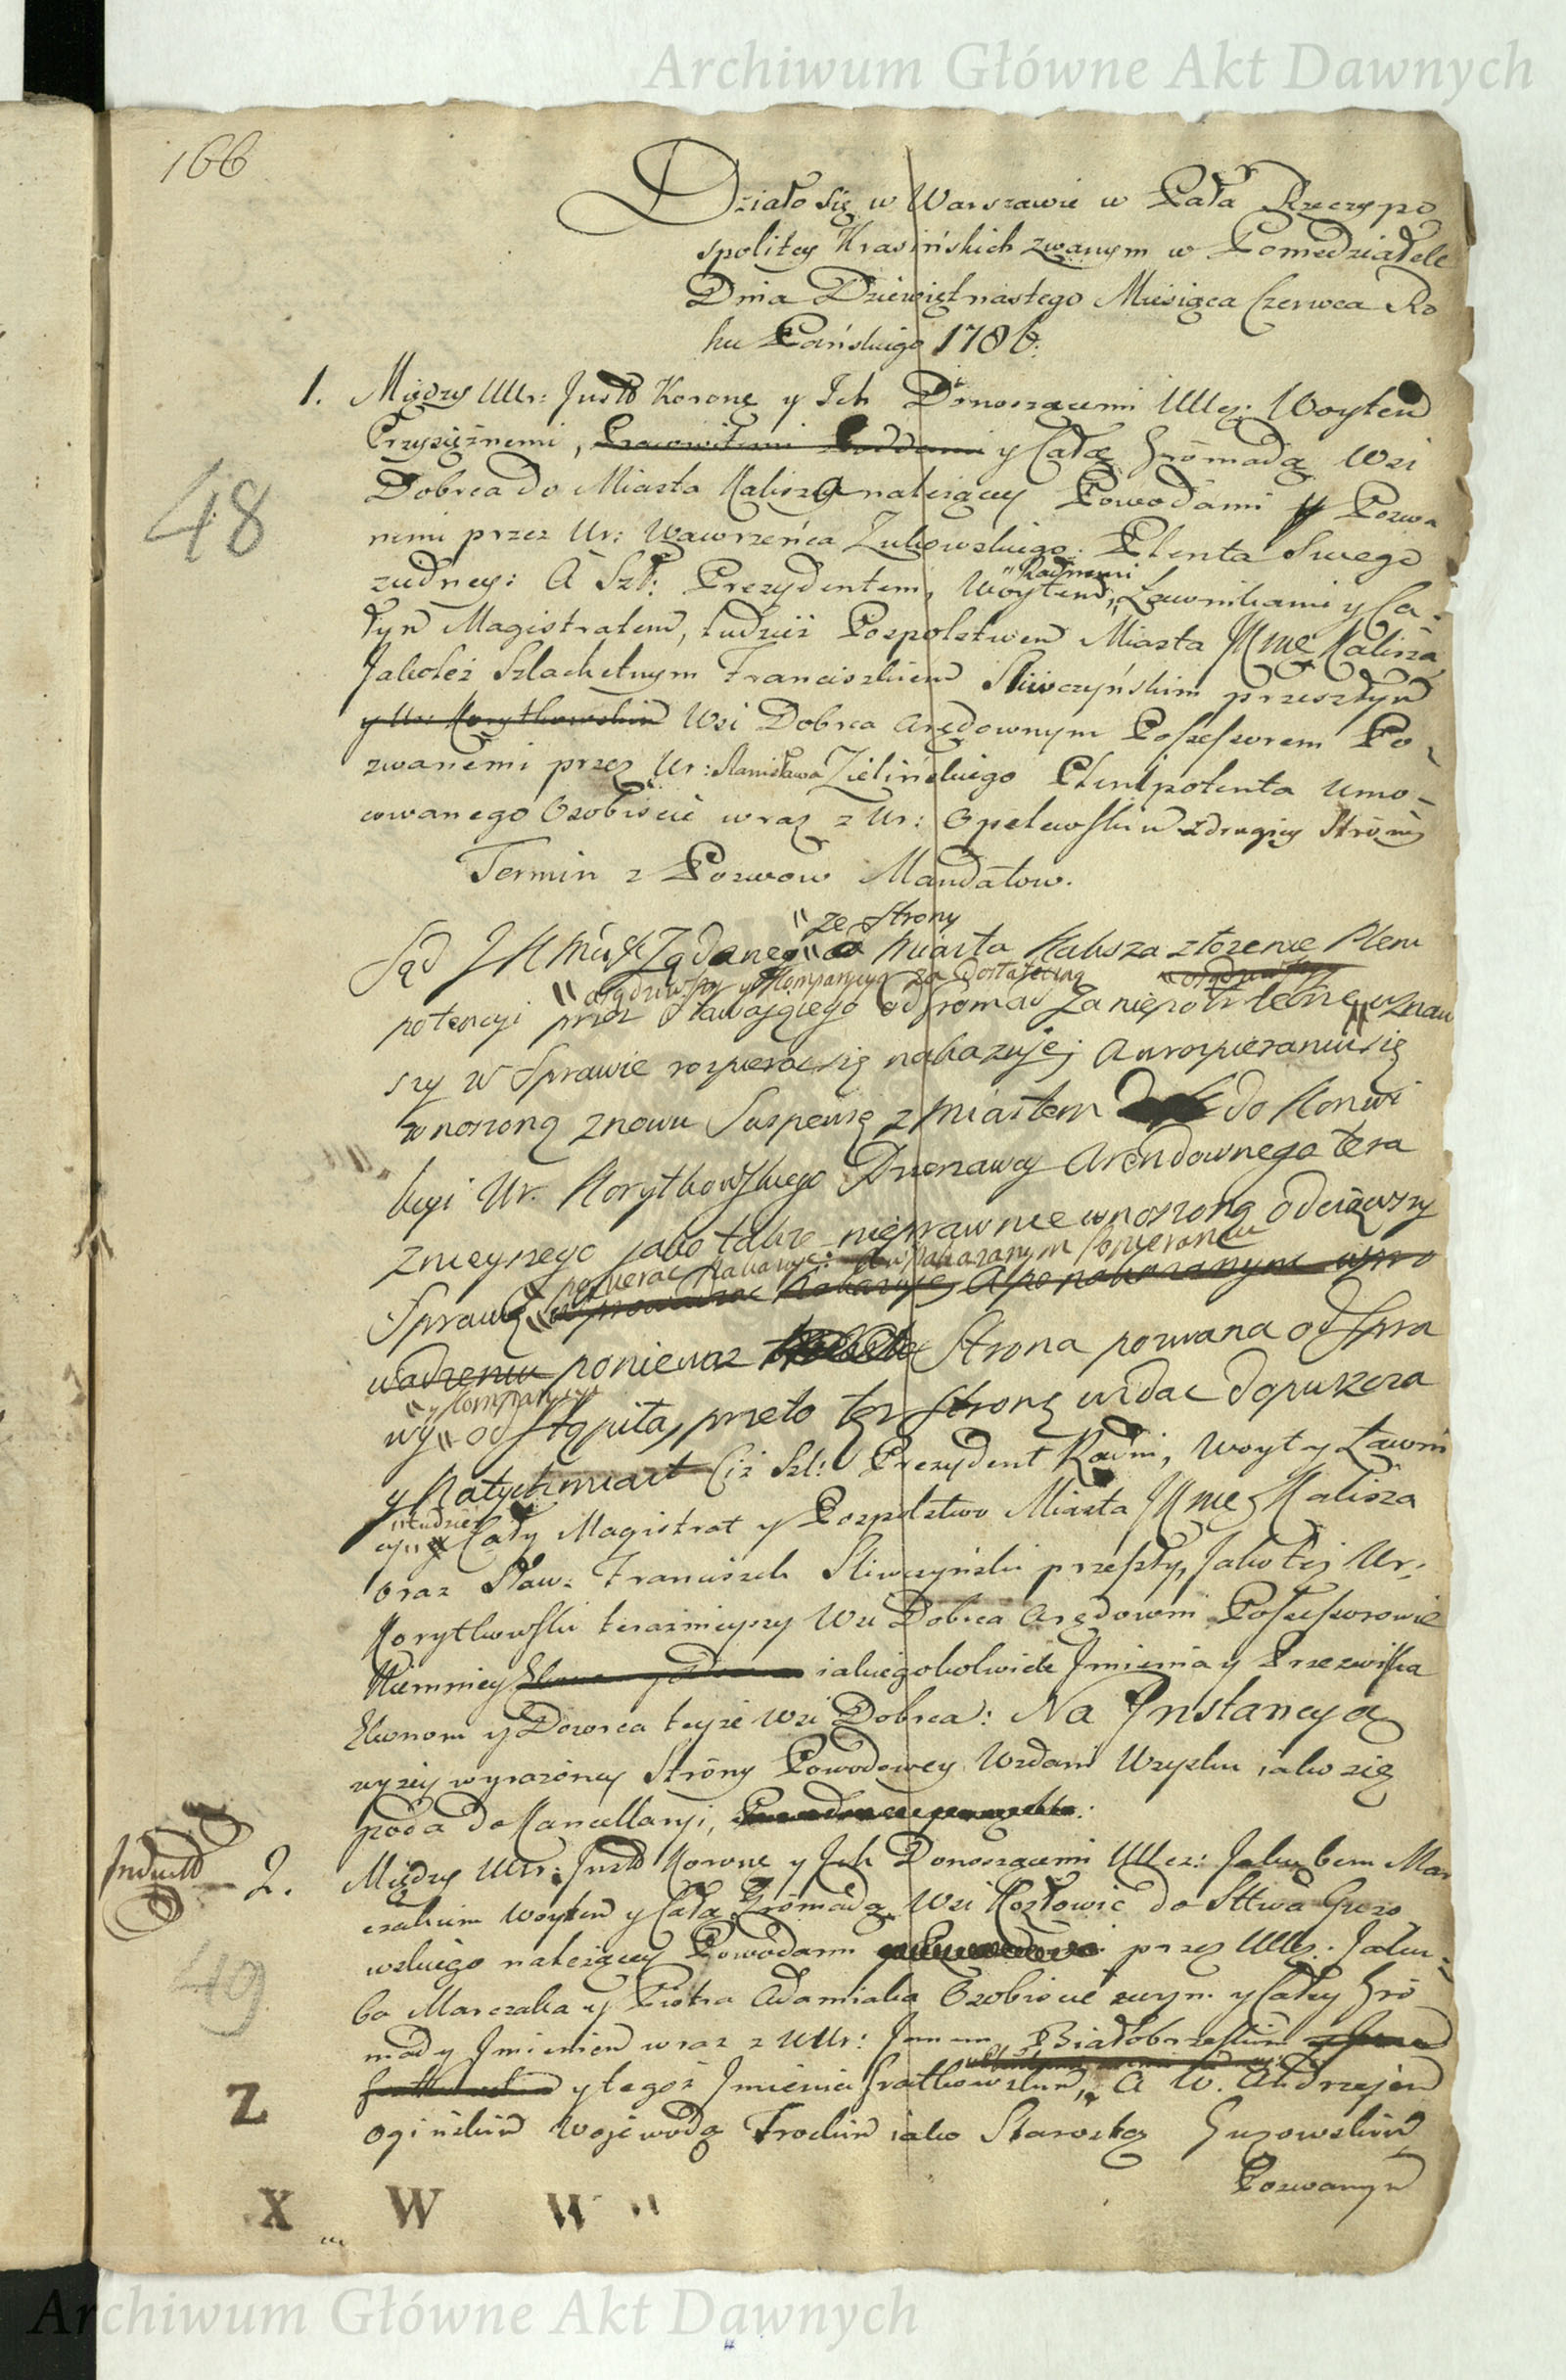 Archiwum Główne Akt Dawnych
166
Działo się w Warszawie w Pała Rzeczypo
spolitey Krasińskich zwanym w Poniedziałek
Dnia Dziewiętnastego Miesiąca Czerwca Ro
ku Pańskiego 1786.
1. Między UUr: Just Koronę y Ich Donoszącemi UUcz: Woytem
Przysiężnemi, y Całą Gromadą Wsi
48
Dobrca do Miasta Kalisza należącey Powodami Pozwa
nemi przez Ur: Wawrzeńca Żukowskiego Plenta Swego
z iedney: A Szl: Prezydentem, Woytem, "Radnemi Ławnikami y Ca-
łym Magistratem, tudzież Pospolstwem Miasta JKMę Kalisza
Jakoteż Szlachetnym Franciszkiem Sliwczyńskim przeszłym
y Ur: Korytkowskim Wsi Dobrca Arędownym Possessorem Po
zwanemi przez Ur: Stanisława Zielińskiego Plenipotenta umo-
cowanego Osobiscie wraz z Ur: Opelewskim z drugiey Strony
Termin z Pozwow Mandatow.
"ze Strony
Sąd JKMći Żądanego Miasta Kalisza złożenie Pleni
"osądziwszy y Kompanycyą za Dostateczną
potencyi przez Stawaiącego od Gromad za niepotrzebne uznaw
szy w Sprawie rozpierac się nakazuje; A w rozpieraniu się
wnoszoną znowu Suspensę z Miastem do Konwi
kcyi Ur. Korytkowskiego Dzierzawcy Arendownego tera
znieyszego jako także nieprawnie wnoszoną odciąwszy
popierac Nakazuje: A w Nakazanym Popieraniu
Sprawę wprowadzac Nakazuje A po nakazanym wpro
wadzeniu poniewaz Strona pozwana od Spra
"y Kompanycyi
wy odstąpiła, przeto tęż Stronę wzdac dopuszcza
y Natychmiast Ciż Szl: Prezydent Radni, Woyt y Ławni
"tudzież
cy Cały Magistrat y Pospolstwo Miasta JKMę Kalisza
oraz Sław: Franciszek Sliwczyński przeszły, Jakoteż Ur:
Korytkowski teraznieyszy Wsi Dobrca Arędowni Possessorowie
Niemniey iakiegokolwiek Jmienia y Przezwiska
Ekonom y Dozorca teyże Wsi Dobrca: Na Jnstancyą
wyżey wyrażoney Strony Powodowey Wzdani Wzysku iako się
poda do Kancellaryi,
Indukt 2. Między UUr: Just Koronę y Ich Donoszącemi UUcz: Jakubem Mar
czakiem Woytem y Całą Gromadą Wsi Kozłowic do Sttwa Guzo
49
wskiego należącey Powodami przez UUcz: Jaku-
ba Marczaka y Piotra Adamiaka Osobiscie swym y Całey Gro
mady Jmieniem wraz z UUr: Białobrzeskim
y tegoż Jmienia Gratkowskim, A W. Andrzejem
Ogińskim Wojewodą Trockim iako Starostą Guzowskim
Pozwanym
Z
X W W "
Archiwum Główne Akt Dawnych